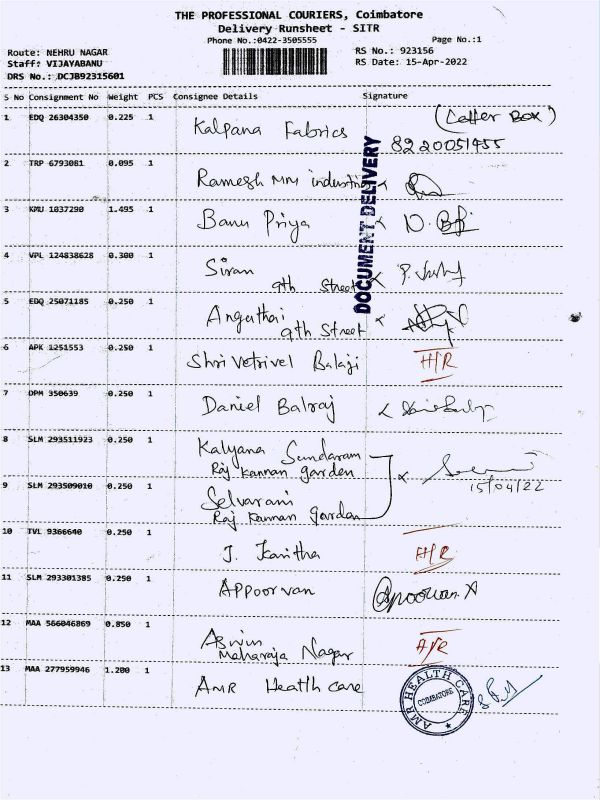 THE PROFESSIONAL COURIERS, Coimbatore
Delivery Runsheet - SITR
Phone No.:0422-3505555 Page No.:1
Route: NEHRU NAGAR RS No.: 923156
Staff: VIJAYABANU RS Date: 15-Apr-2022
DRS No.: DCJB92315601
S No Consignment No Weight PCS Consignee Details Signature
1 EDQ 26304350 0.225 1 Kalpana Fabrics (Letter Box)
8220051455
2 TRP 6793081 0.095 1 Ramesh MM industries
3 KMU 1037290 1.495 1 Banu Priya
4 VPL 124838628 0.300 1 Siran
9th Street
5 EDQ 25071185 0.250 1 Anguthai
9th Street
6 APK 1251553 0.250 1 Shri Vetrivel Balaji H/R
7 DPM 350639 0.250 1 Daniel Balraj
8 SLM 293511923 0.250 1 Kalyana Sundaram
Raj Kannan garden
15/04/22
9 SLM 293509010 0.250 1 Selvarani
Raj Kannan Garden
10 TVL 9366640 0.250 1 J. Kanitha H/R
11 SLM 293301385 0.250 1 Appoorvan Apoorvan.A
12 MAA 566046869 0.850 1 Aswin
Maharaja Nagar A/R
13 MAA 277959946 1.200 1 AMR Health care
DOCUMENT DELIVERY
AMR HEALTH CARE
COIMBATORE